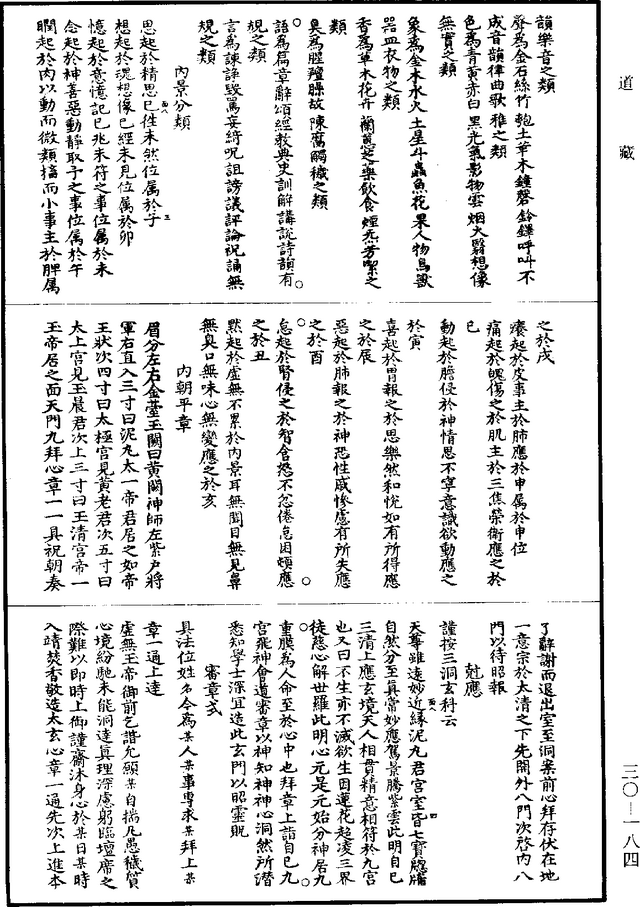 道藏
韻樂音之類
聲為金石絲竹匏土草木鐘磬鈴鐸呼叫不
成音韻律曲歌雅之類
色為青黃赤白黑光氣影物雲烟火翳想像
無實之類
象為金木水火土星斗蟲魚花果人物鳥獸
器皿衣物之類
香為草木花卉蘭蕙芝藥飲食烟炁芳潔之
類
臭為腥羶臊故陳腐觸穢之類
語為篇章辭頌經教典史訓解講說詩韻有
規之類
言為諫諍毀罵妄綺呪詛謗議評論祝誦無
規之類
內景分類
思起於精思巳徃未然位屬於子
想起於魂想像巳經未見位屬於卯
憶起於意憶記巳兆未符之事位屬於未
念起於神善惡動靜取予之事位屬於午
瞤起於肉以動而微類搐而小事主於脾屬
之於戌
癢起於皮事主於肺應於申屬於申位
痛起於魄傷之於肌主於三焦榮衛應之於
巳
動起於膽侵於神情思不寧意識欲動應之
於寅
喜起於胃報之於思樂然和悅如有所得應
之於辰
惡起於肺報之於神恐性感慘慮有所失應
之於酉
怠起於腎侵之於智含怨不忿倦怠因頓應
之於丑
默起於虛無不累於內景耳無聞目無見鼻
無臭口無味心無變應之於亥
內朝平章
眉分左右金臺玉闕曰黃闕神師左紫户將
軍右直入三寸曰泥丸太一帝君居之如帝
王狀次四寸曰太極宮見黃老君次五寸曰
太上宮見玉晨君次上三寸曰玉清宮帝一
玉帝居之面天門九拜心章一一具祝朝奏
了辭謝而退出室至洞案前心拜存伏在地
一意宗於太清之下先闔外八門次啓內八
門以待昭報
尅應
謹按三洞玄科云
天尊雖遠妙近緣泥丸君宮室皆七寶牕牖
自然分至真常妙應駕景騰紫雲此明自巳
三清上應玄境天人相貫精意相符於九宮
也又曰不生亦不滅欲生因蓮花超凌三界
徒慈心解世羅此明心元是元始分神居九
重膜為人命至於心中也拜章上詣自巳九
宮飛神會道審章以神知神神心洞然所潛
悉知學士深宜造此玄門以昭靈貺
審章式
具法位姓名今為某人某事專求某拜上某
章一通上達
虛無玉帝御前乞諧允願某自揣凡愚穢質
心境紛馳未能洞達真理深慮躬臨壇席之
際難以即時上御謹齋沐身心於某日某時
入靖焚香敬造太玄心章一通先次上進本
三〇—一八四